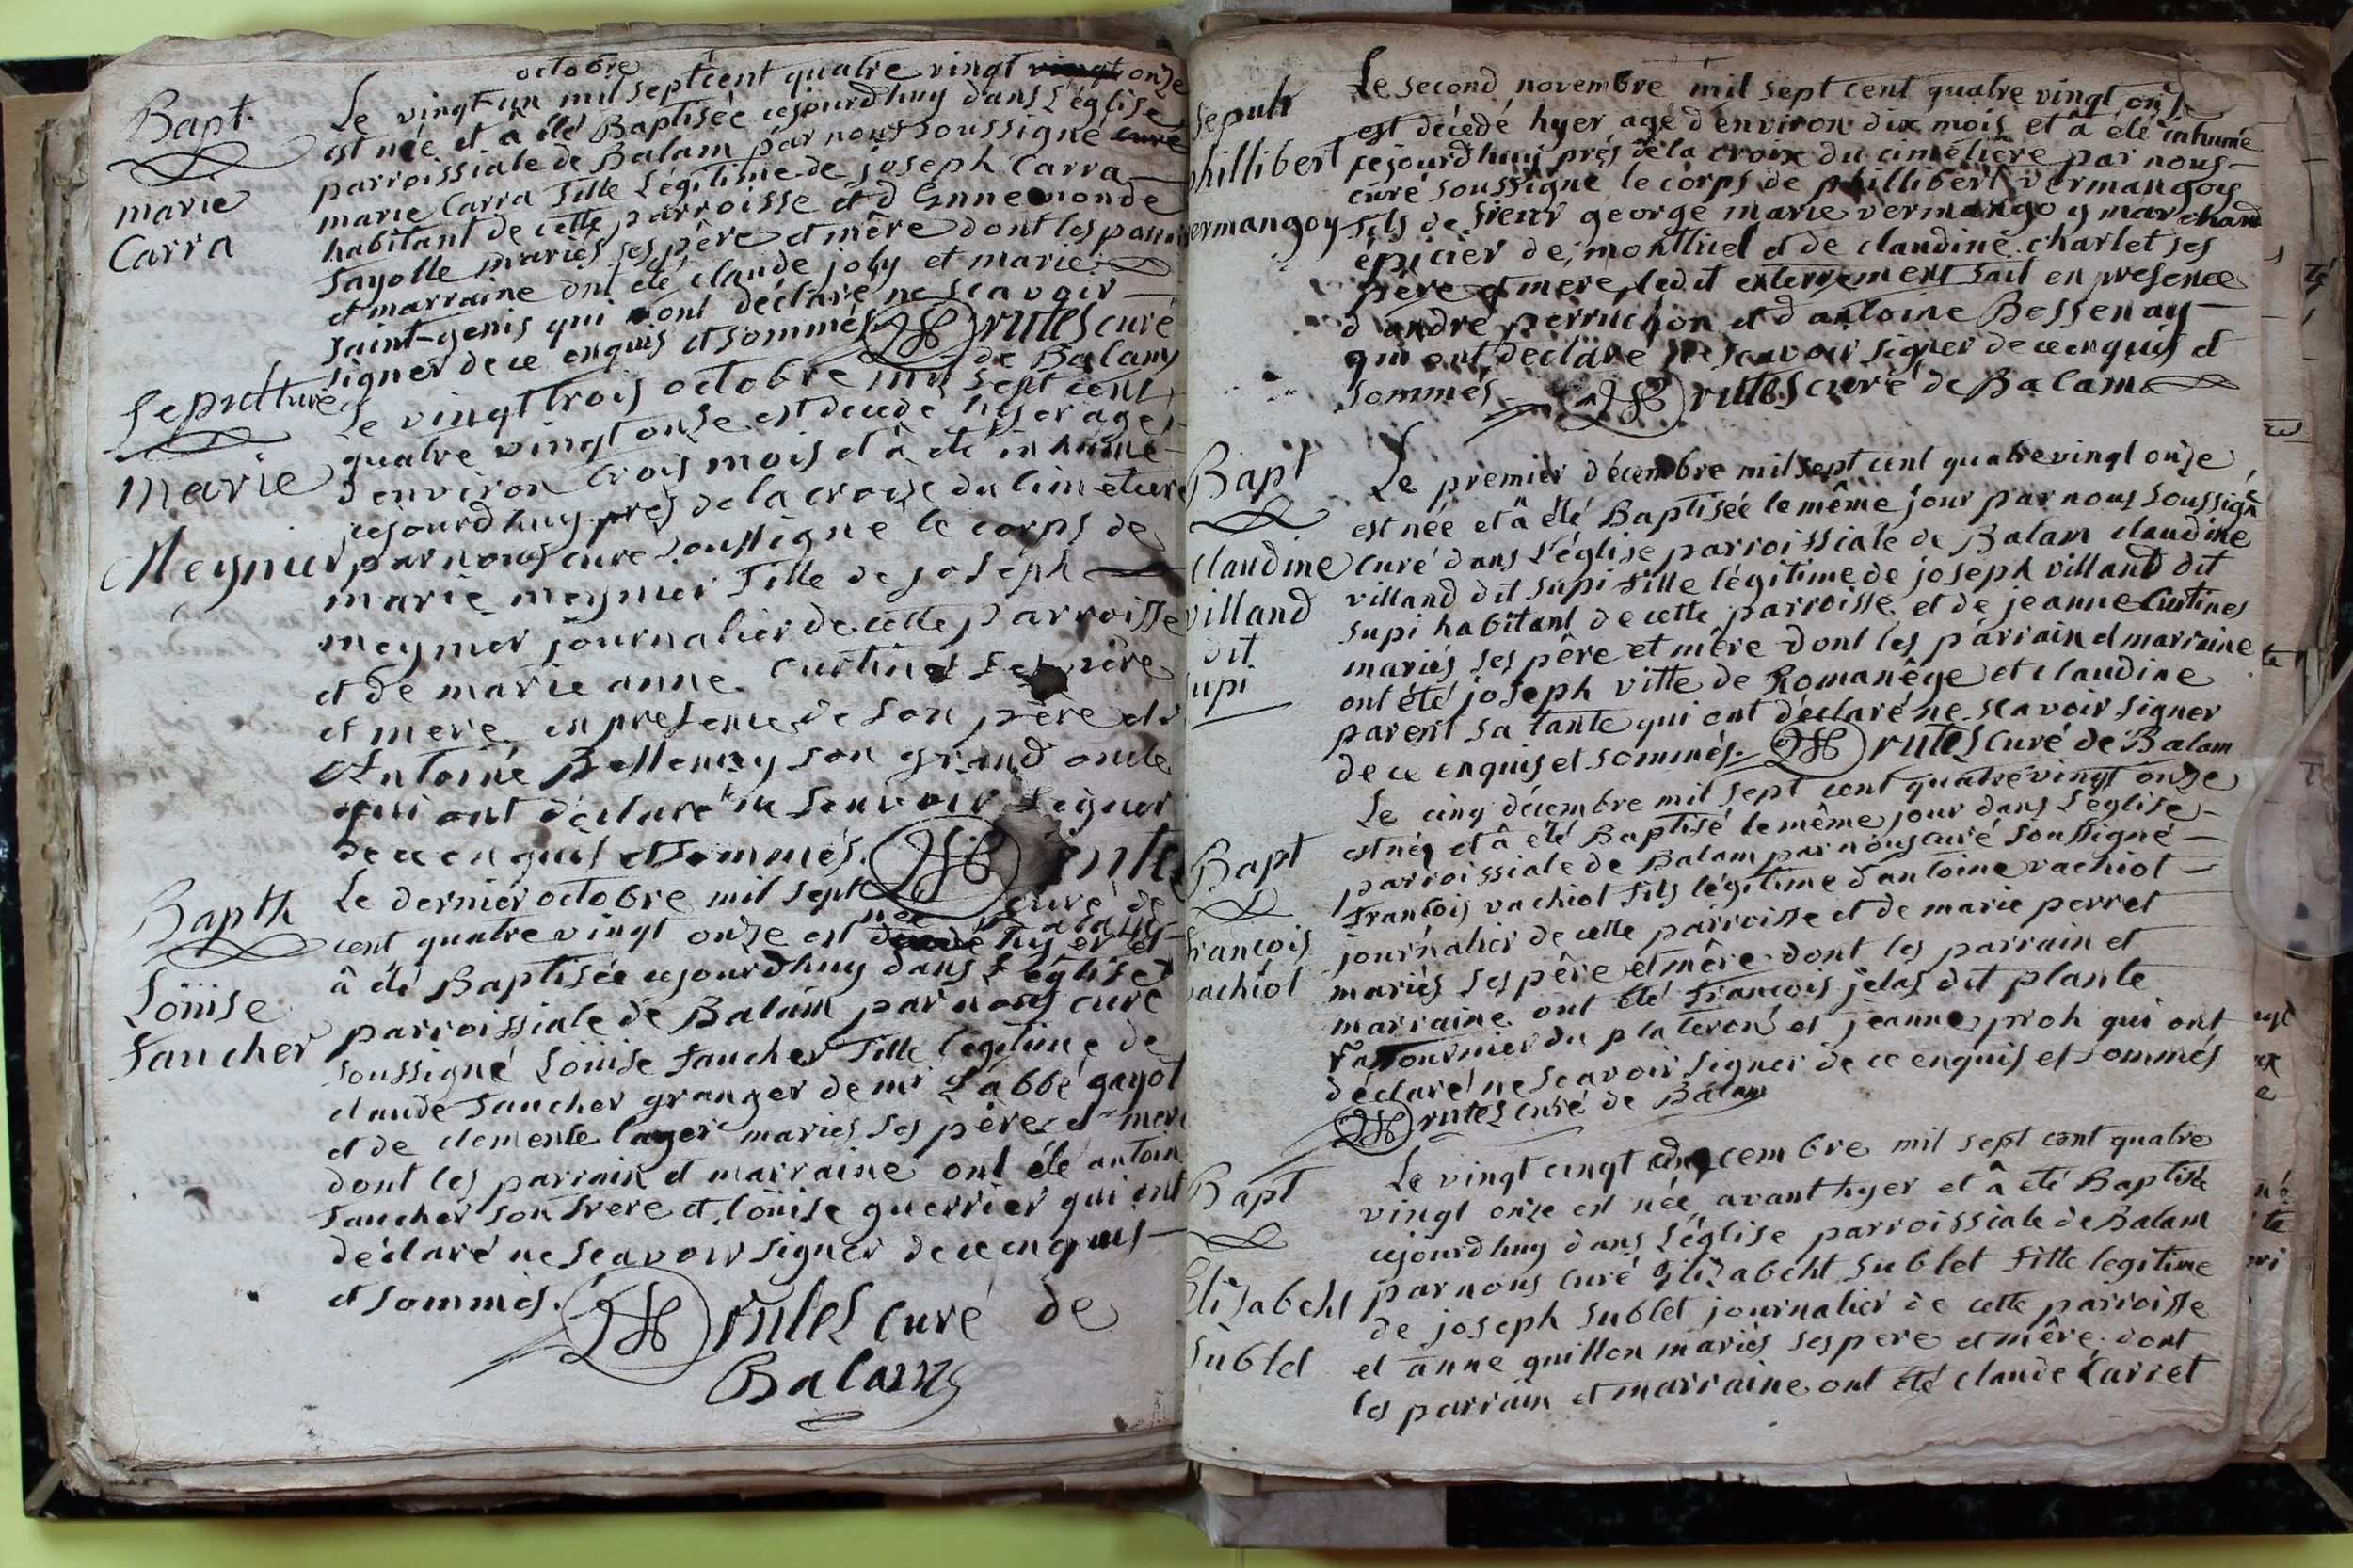 Bapt.
marie
Carra
octobre
Le vingt-un mil sept cent quatre vingt vingt onze
est née et a été Baptisée cejourdhuy dans L'église
parroissiale de Balam par nous soussigné curé
marie Carra fille Légitime de joseph Carra
habitant de cette parroisse et d'Ennemonde
fayolle mariés ses père et mêre dont les parrain
et marraine ont été claude joly et marie
saint-genis qui ont déclaré ne scavoir
signer de ce enquis et sommés rutes curé
de Balam
Sepulture
marie
Meynier
Le vingt trois octobre mil sept cent
quatre vingt onze est decedé hyer agé
d'environ trois mois et à été inhumé
cejourdhuy près de la croix du cimetiere
par nous curé soussigné le corps de
marie meynier fille de joseph
meynier journalier de cette parroisse
et de marie anne curtines ses père
et mere en presence de son père et
Antoine Bessenay son grand oncle
qui ont déclaré ne scavoir signer
de ce enquis et sommés. rutes
curé de
Balam
Bapth
Loüise
faucher
Le dernier octobre mil sept
cent quatre vingt onze est decedé née hyer et
â été Baptisée cejourdhuy dans L'église
parroissiale de Balam par nous curé
soussigné Loüise faucher fille légitime de
claude faucher granger de mr L'abbé gayot
et de clemente layer mariés ses père et mere
dont les parrain et marraine ont été antoin
faucher son frere et loüise guerrier qui ont
déclaré ne scavoir signer de ce enquis
et sommés. rutes curé de
Balam
sepult
phillibert
vermangoy
Le second novembre mil sept cent quatre vingt onze
est décedé hyer agé d'environ dix mois et â été inhumé
cejourdhuy près de la croix du cimetière par nous
curé soussigné le corps de phillibert vermangoy
fils de sieur george marie vermangoy marchand
épicier de montluel et de claudine charlet ses
père et mere, ledit enterrement fait en presence
d'andré perruchon et d'antoine Bessenay
qui ont declaré ne scavoir signer de ce enquis et
sommés rutes curé de Balam
Bapt
claudine
villand
dit
supi
Le premier décembre mil sept cent quatre vingt onze
est née et â été Baptisée le même jour par nous soussigné
curé dans L'église parroissiale de Balam claudine
villand dit supi fille légitime de joseph villand dit
supi habitant de cette parroisse et de jeanne Curtines
mariés ses père et mère dont les parrain et marraine
ont été joseph vitte de Romanêge et claudine
parent sa tante qui ont déclaré ne scavoir signer
de ce enquis et sommés. rutes curé de Balam
Bapt
francois
vachiot
Le cinq décembre mil sept cent quatre vingt onze
est née et â été Baptisé le même jour dans L'église
parroissiale de Balam par nous curé soussigné
francois vachiot fils légitime d'antoine vachiot
journalier de cette parroisse et de marie perret
mariés ses père et mère dont les parrain et
marraine ont été francois jelas dit plante
fournier du plateron et jeanne proh qui ont
déclaré ne scavoir signer de ce enquis et sommés
rutes curé de Balam
Bapt
Elizabeht
Sublet
Le vingt cinqt décembre mil sept cent quatre
vingt onze est née avant hyer et â été Baptisée
cejourdhuy dans L'église parroissiale de Balam
par nous curé Elizabeht Sublet fille legitime
de joseph Sublet journalier de cette parroisse
et anne guillon mariés ses pere et mêre. dont
les parrain et marraine ont été claude Carret